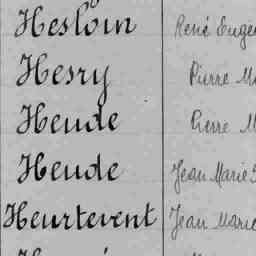 Hesloin René Euge
Hesry Pierre M
Heude Pierre M
Heude Jean Marie
Heurtevent Jean Marie